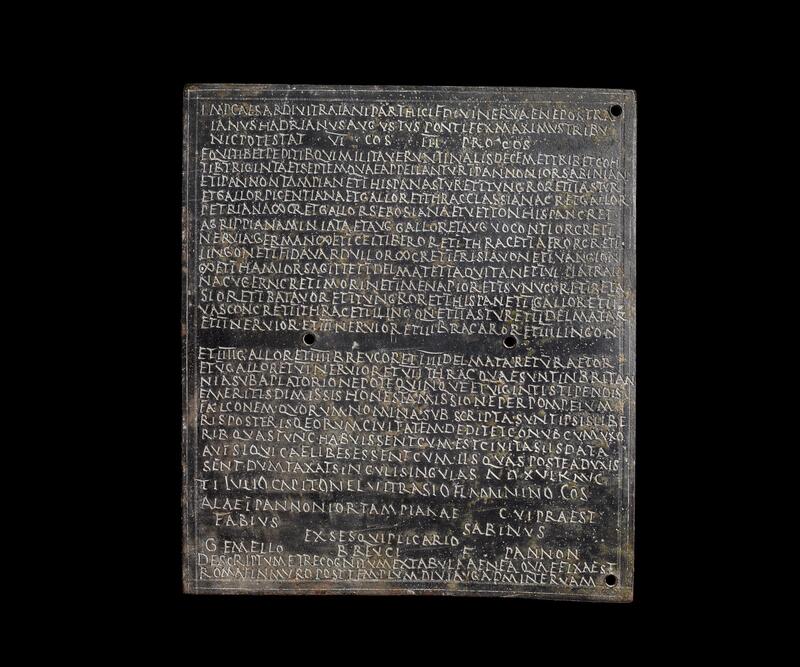 IMP CAESAR DIVI TRAIANI PARTHICI F DIVI NERVAE NEPOS TRA
IANVS HADRIANVS AVGVSTVS PONTIFEX MAXIMVS TRIBV
NIC POTESTAT VI COS III PROCOS
EQVITIB ET PEDITIB QVI MILITAVERVNT IN ALIS DECEM ET TRIB ET COH
TIB TRIGINTA ET SEPTEM QVAE APPELLANTVR I PANNONIOR SABINIAN
ET I PANNON TAMPIAN ET I HISPAN ASTVR ET I TVNGROR ET II ASTVR
ET GALLOR PICENTIANA ET GALLOR ET THRAC CLASSIANA C R ET GALLOR
PETRIANA ∞ C R ET GALLOR SEBOSIANA ET VETTON HISPAN C R ET
AGRIPPIANA MINIATA ET AVG GALLOR ET AVG VOCONTIOR C R ET I
NERVIA GERMAN ∞ ET I CELTIBEROR ET I THRAC ET I AFROR C R ET I
LINGON ET I FIDA VARDVLLOR ∞ C R ET I FRISIAVON ET I VANGION
∞ ET I HAMIOR SAGITT ET I DELMAT ET I AQVITAN ET I VLPIA TRAIA
NA CVGERN C R ET I MORIN ET I MENAPIOR ET I SVNVCOR ET I BETA
SIOR ET I BATAVOR ET I TVNGROR ET I HISPAN ET II GALLOR ET II
VASCON C R ET II THRAC ET II LINGON ET II ASTVR ET II DELMATAR
ET II NERVIOR ET III NERVIOR ET III BRACAROR ET IIII LINGON
ET IIII GALLOR ET IIII BREVCOR ET IIII DELMATAR ET V RAETOR
ET V GALLOR ET VI NERVIOR ET VII THRAC QVAE SVNT IN BRITAN
NIA SVB A PLATORIO NEPOTE QVINQVE ET VIGINTI STIPENDIS
EMERITIS DIMISSIS HONESTA MISSIONE PER POMPEIVM
FALCONEM QVORVM NOMINA SVBSCRIPTA SVNT IPSIS LIBE
RIS POSTERISQ EORVM CIVITATEM DEDIT ET CONVB CVM VXO
RIB QVAS TVNC HABVISSENT CVM EST CIVITAS IIS DATA
AVT SI QVI CAELIBES ESSENT CVM IIS QVAS POSTEA DVXIS
SENT DVMTAXAT SINGVLI SINGVLAS A D XVI K AVG
TI IVLIO CAPITONE L VITRASIO FLAMININO COS
ALAE I PANNONIOR TAMPIANAE CVI PRAEST
FABIVS SABINVS
EX SESQVIPLICARIO
GEMELLO BREVCI F PANNON
DESCRIPTVM ET RECOGNITVM EX TABVLA AENEA QVAE FIXA EST
ROMAE IN MVRO POST TEMPLVM DIVI AVG AD MINERVAM